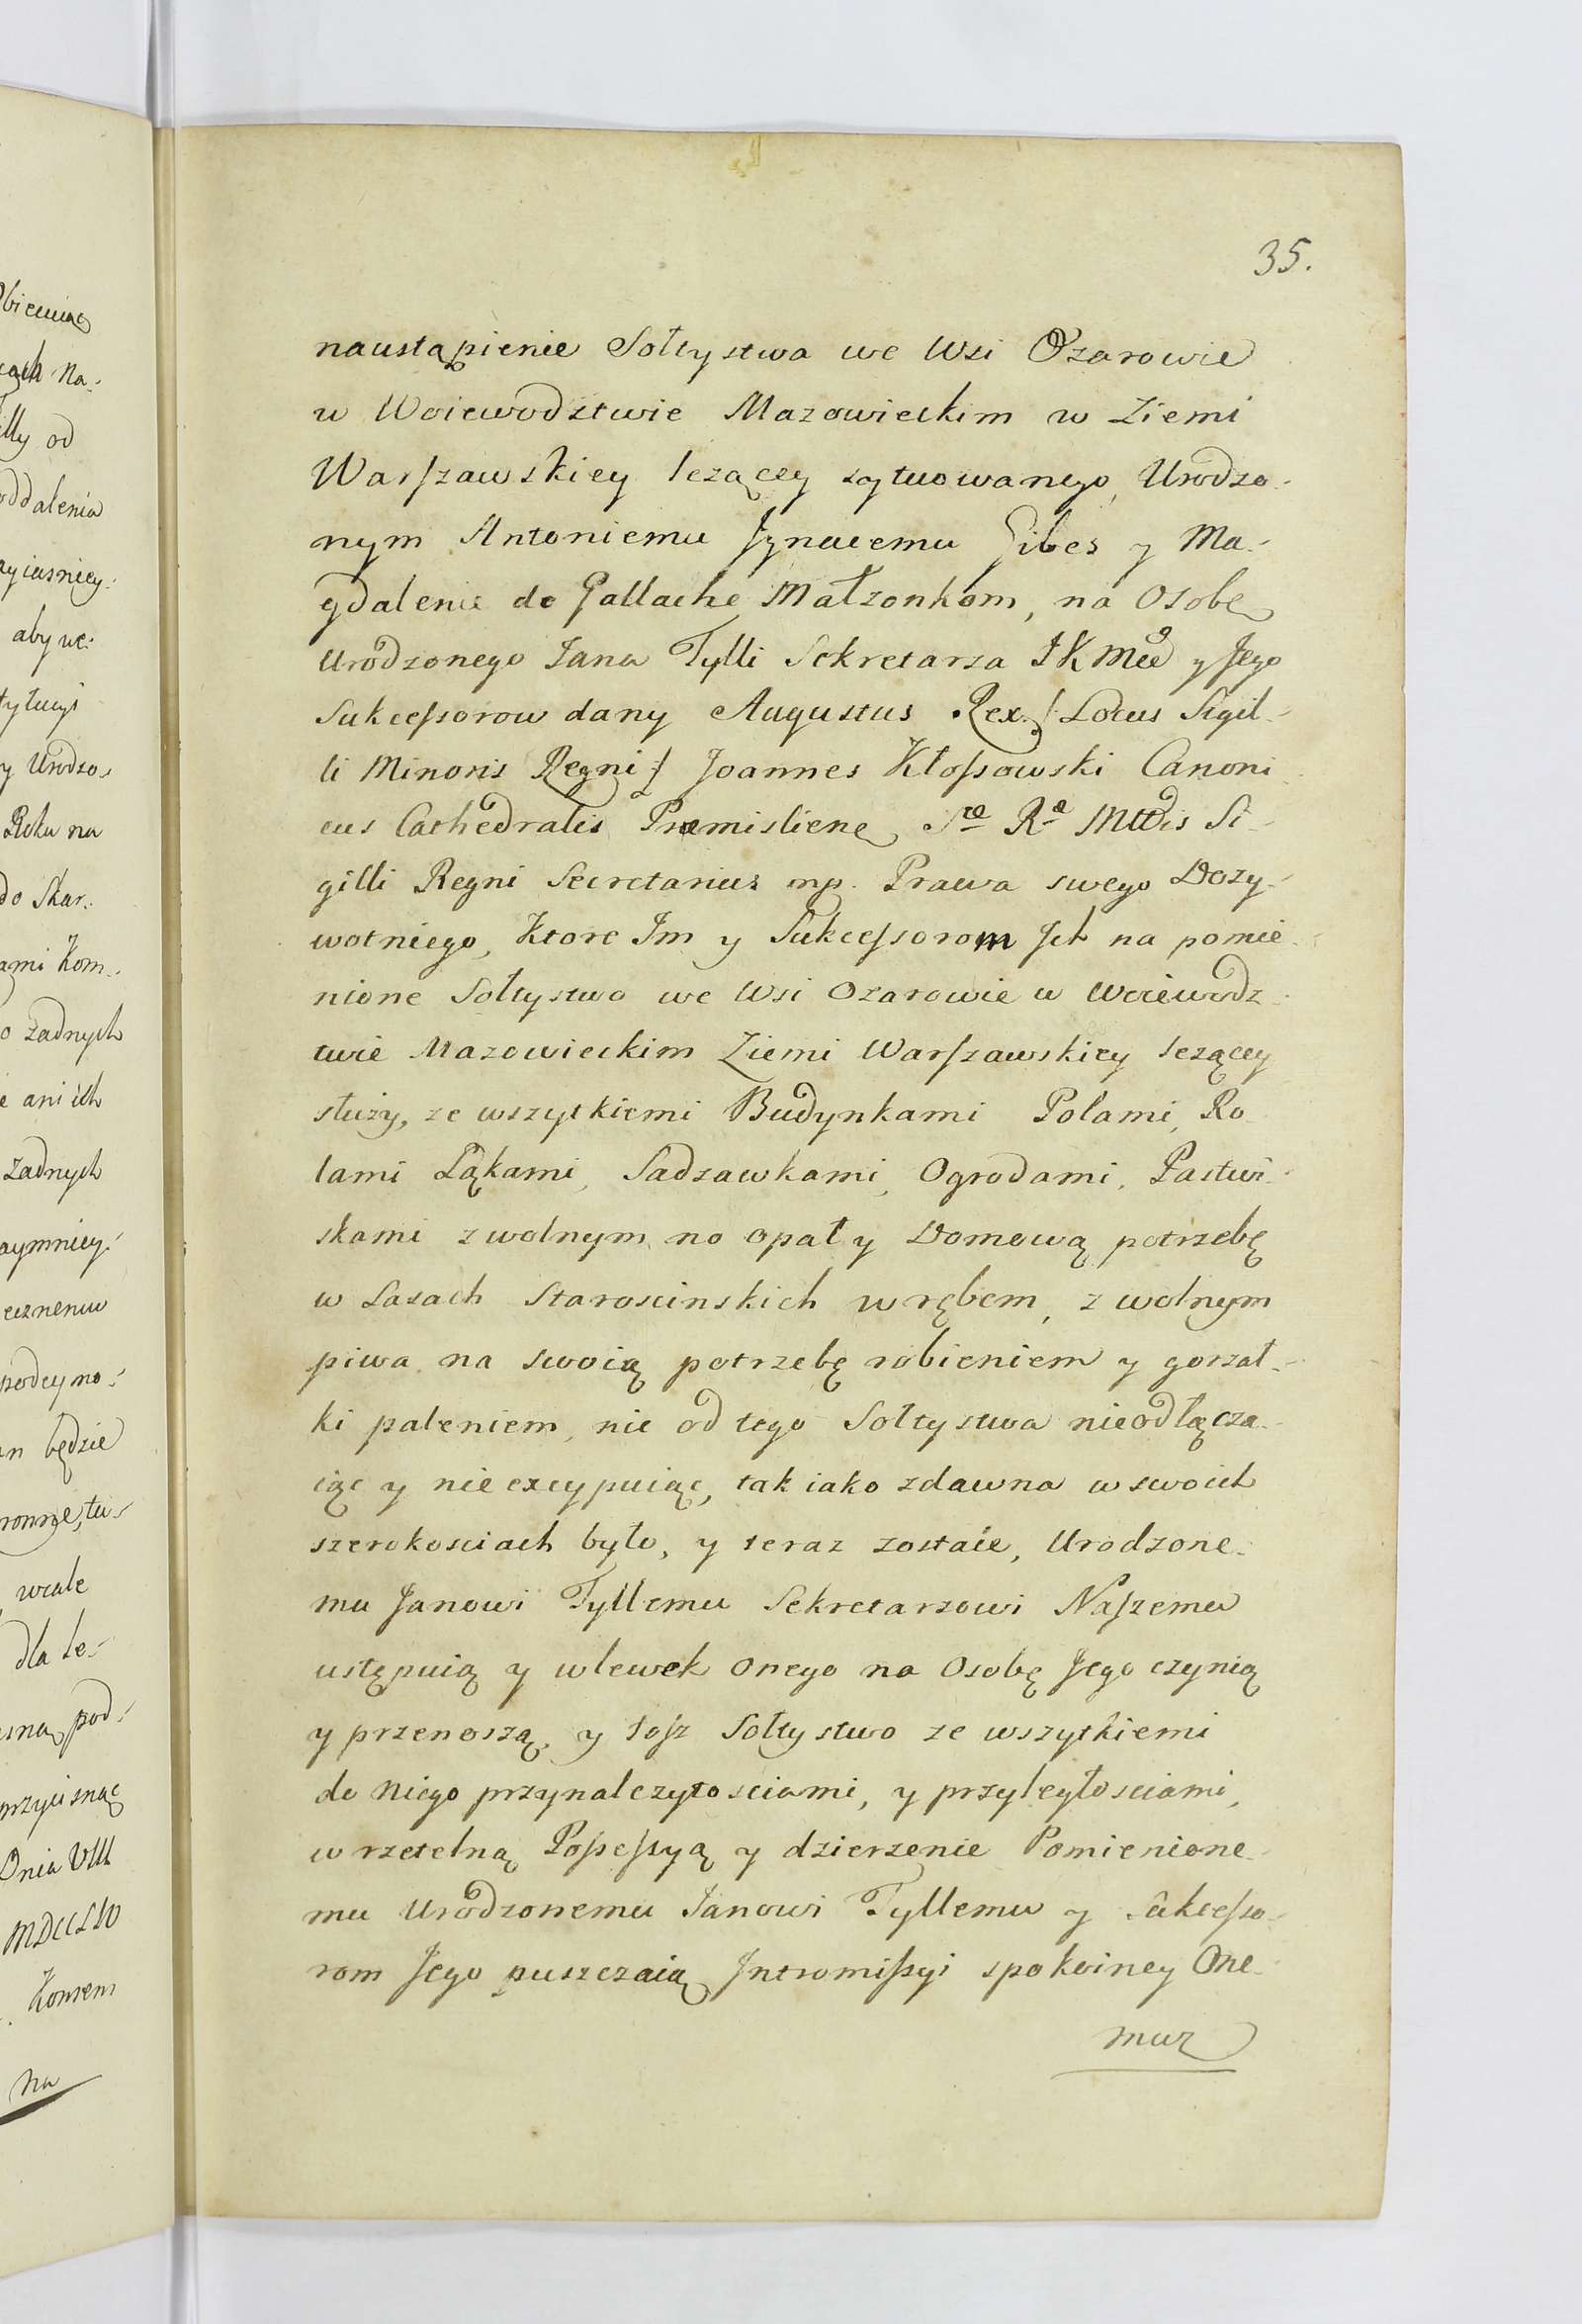 35.
naustąpienie Sołtystwa we Wsi Ozarowie
w Woiewodztwie Mazowieckim w Ziemi
Warſzawskiey lezącey sytuowanego, Urodzo-
nym Antoniemu Jgnacemu Gibes y Ma-
gdalenie de Gallache Małzonkom, na Osobę
Urodzonego Jana Tylli Sekretarza JKMci y Jego
Sukceſsorow dany Augustus Rex. /: Locus Sigil-
li Minoris Regni :/ Joannes Kłoſsowski Canoni
cus Cathedralis Præmisliene Sæ Ræ Mttis Si-
gilli Regni Secretarius mp. Prawa swego Dozy-
wotniego, Ktore Im y Sukceſsorom Jch na pomie-
nione Sołtystwo we Wsi Ozarowie w Woiewodz-
twie Mazowieckim Ziemi Warſzawskiey lezącey
służy, ze wszytkiemi Budynkami Polami, Ro-
lami Łąkami, Sadzawkami, Ogrodami, Pastwi-
skami z wolnym no opał y Domową potrzebę
w Lasach Staroscinskich wrębem, z wolnym
piwa na swoią potrzebę robieniem y gorzał-
ki paleniem, nic od tego Sołtystwa nieodłącza-
iąc y nie excypuiąc, tak iako zdawna w swoich
szerokosciach było, y teraz zostaie, Urodzone-
mu Janowi Tyllemu Sekretarzowi Naſzemu
ustępuią y wlewek onego na Osobę Jego czynią
y przenoszą, y toſz Sołtystwo ze wszytkiemi
do niego przynalezytosciami, y przyległosciami,
w rzetelną Poſseſsyą y dzierzenie Pomienione-
mu Urodzonemu Janowi Tyllemu y Sukceſso-
rom Jego puszczaią Jntromiſsyi spokoiney One-
muz